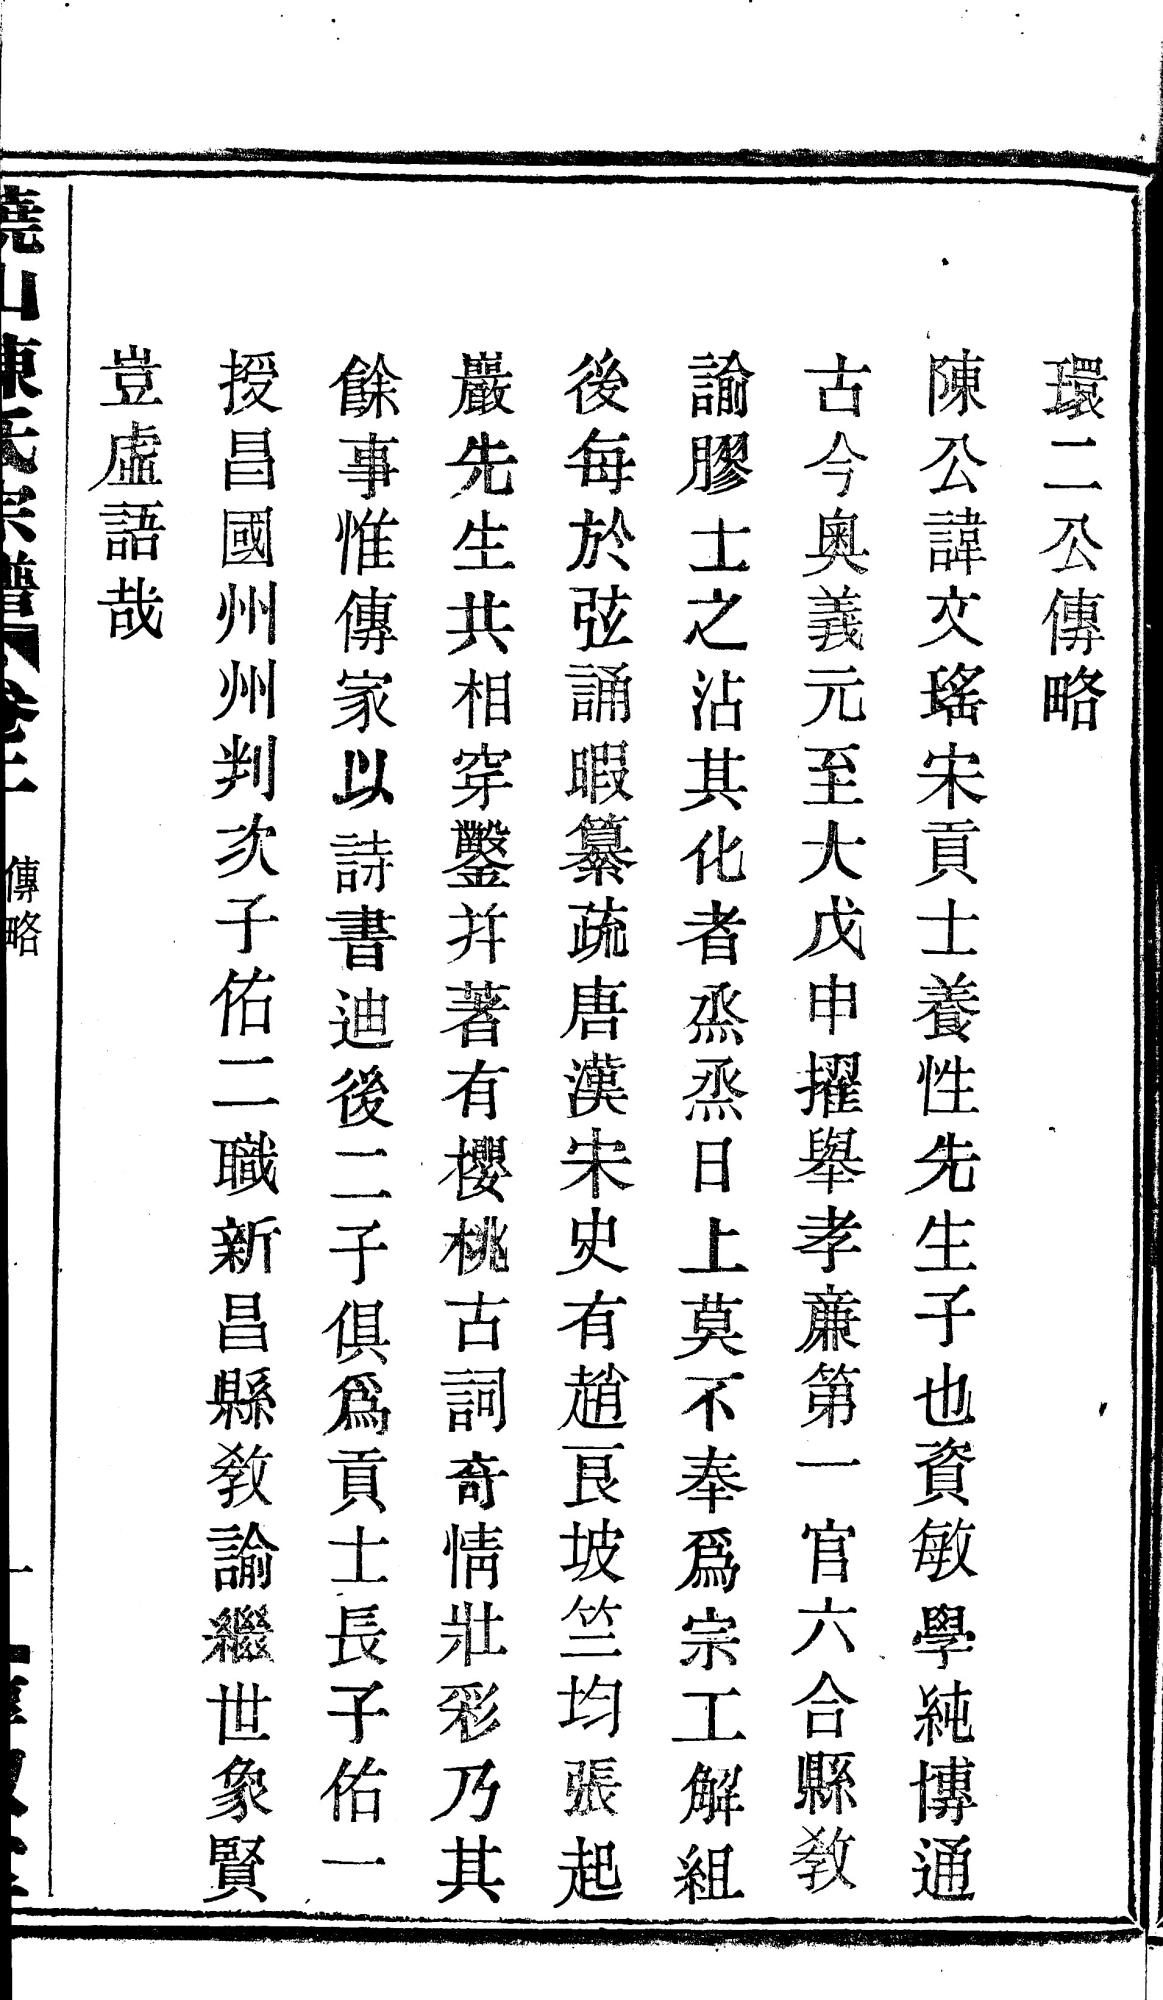 環二公傳略
陳公諱文瑤宋貢士養性先生子也資敏學純博通
古今奧義元至大戊申擢舉孝廉第一官六合縣教
諭膠士之沾其化者烝烝日上莫不奉爲宗工解組
後每於弦誦暇纂疏唐漢宋史有趙艮坡竺均張起
巖先生共相穿鑿幷著有櫻桃古詞奇情壯彩乃其
餘事惟傳家以詩書迪後二子俱爲貢士長子佑一
授昌國州州判次子佑二職新昌縣教諭繼世象賢
豈虛語哉
山陳氏宗譜 卷二 傳略